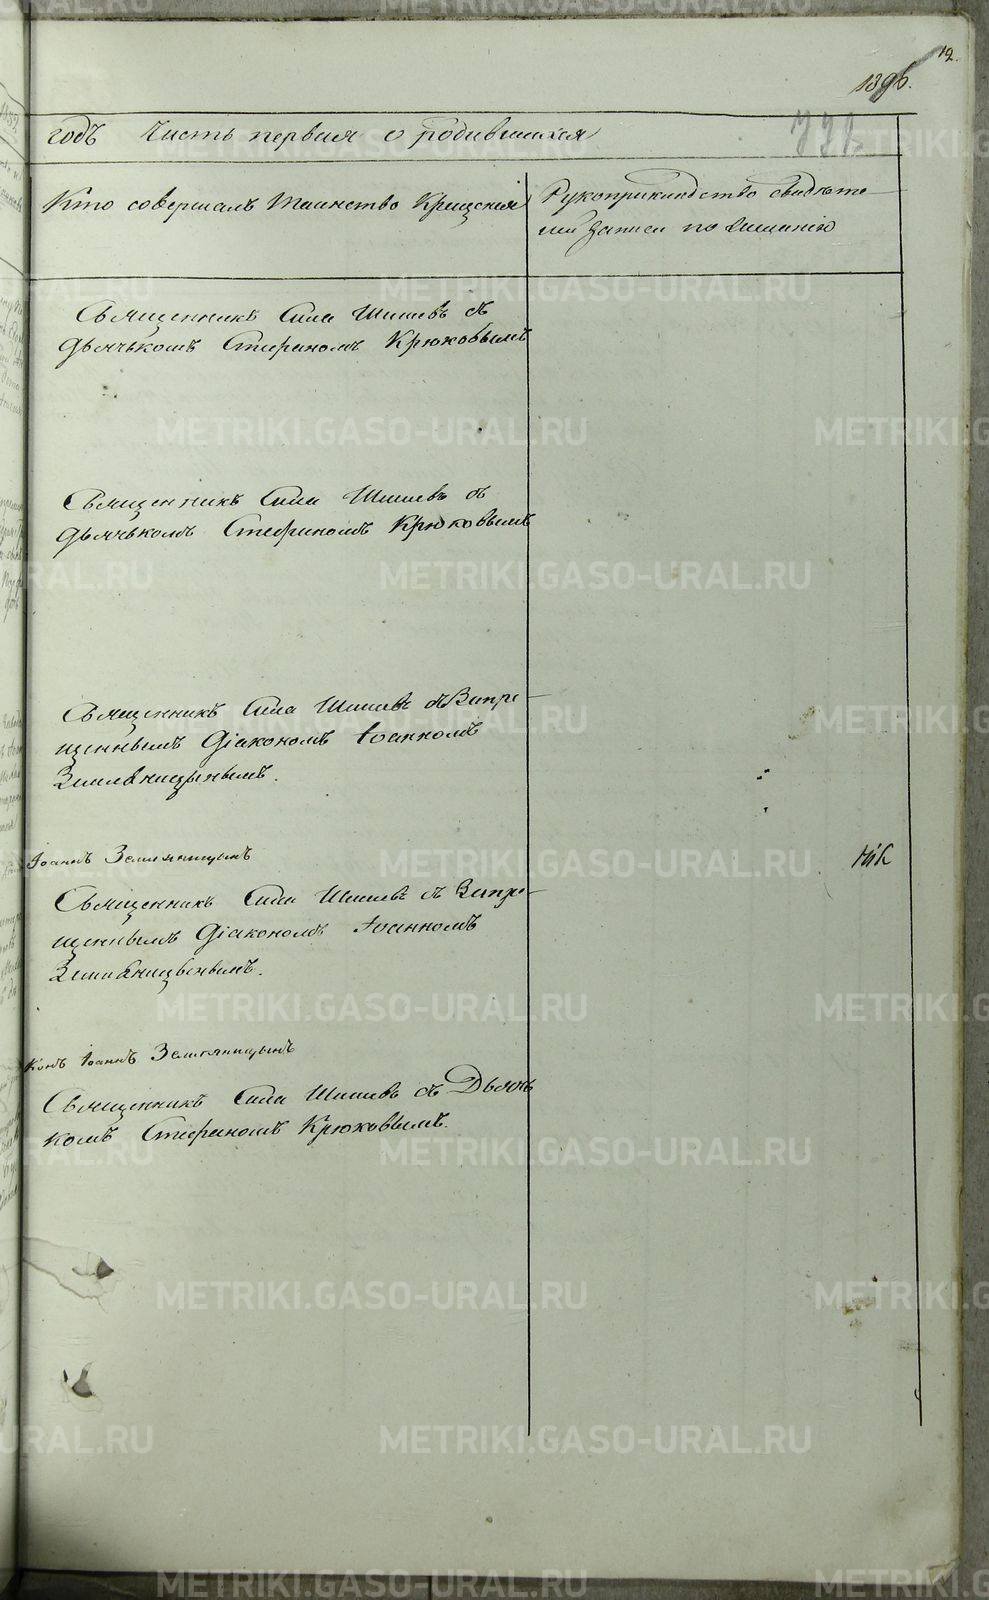 12.
1896.
годъ Часть первая о родившихся
Кто совершалъ Таинство Крещенія
Рукоприкладство свидѣте
лей записи по желанію
Священникъ Сила Шишевъ съ
дьячькомъ Стефаномъ Крюковымъ
Священникъ Сила Шишевъ съ
дьячькомъ Стефаномъ Крюковымъ
Священникъ Сила Шишевъ съ Запре
щеннымъ Діакономъ Іоанномъ
Земляницынымъ.
Іоаннъ Земляницынъ
Священникъ Сила Шишевъ съ Запре
щеннымъ Діакономъ Іоанномъ
Земляницынымъ.
конъ Іоаннъ Земляницынъ
Священникъ Сила Шишевъ съ Дьячь
комъ Стефаномъ Крюковымъ.
METRIKI.GASO-URAL.RU